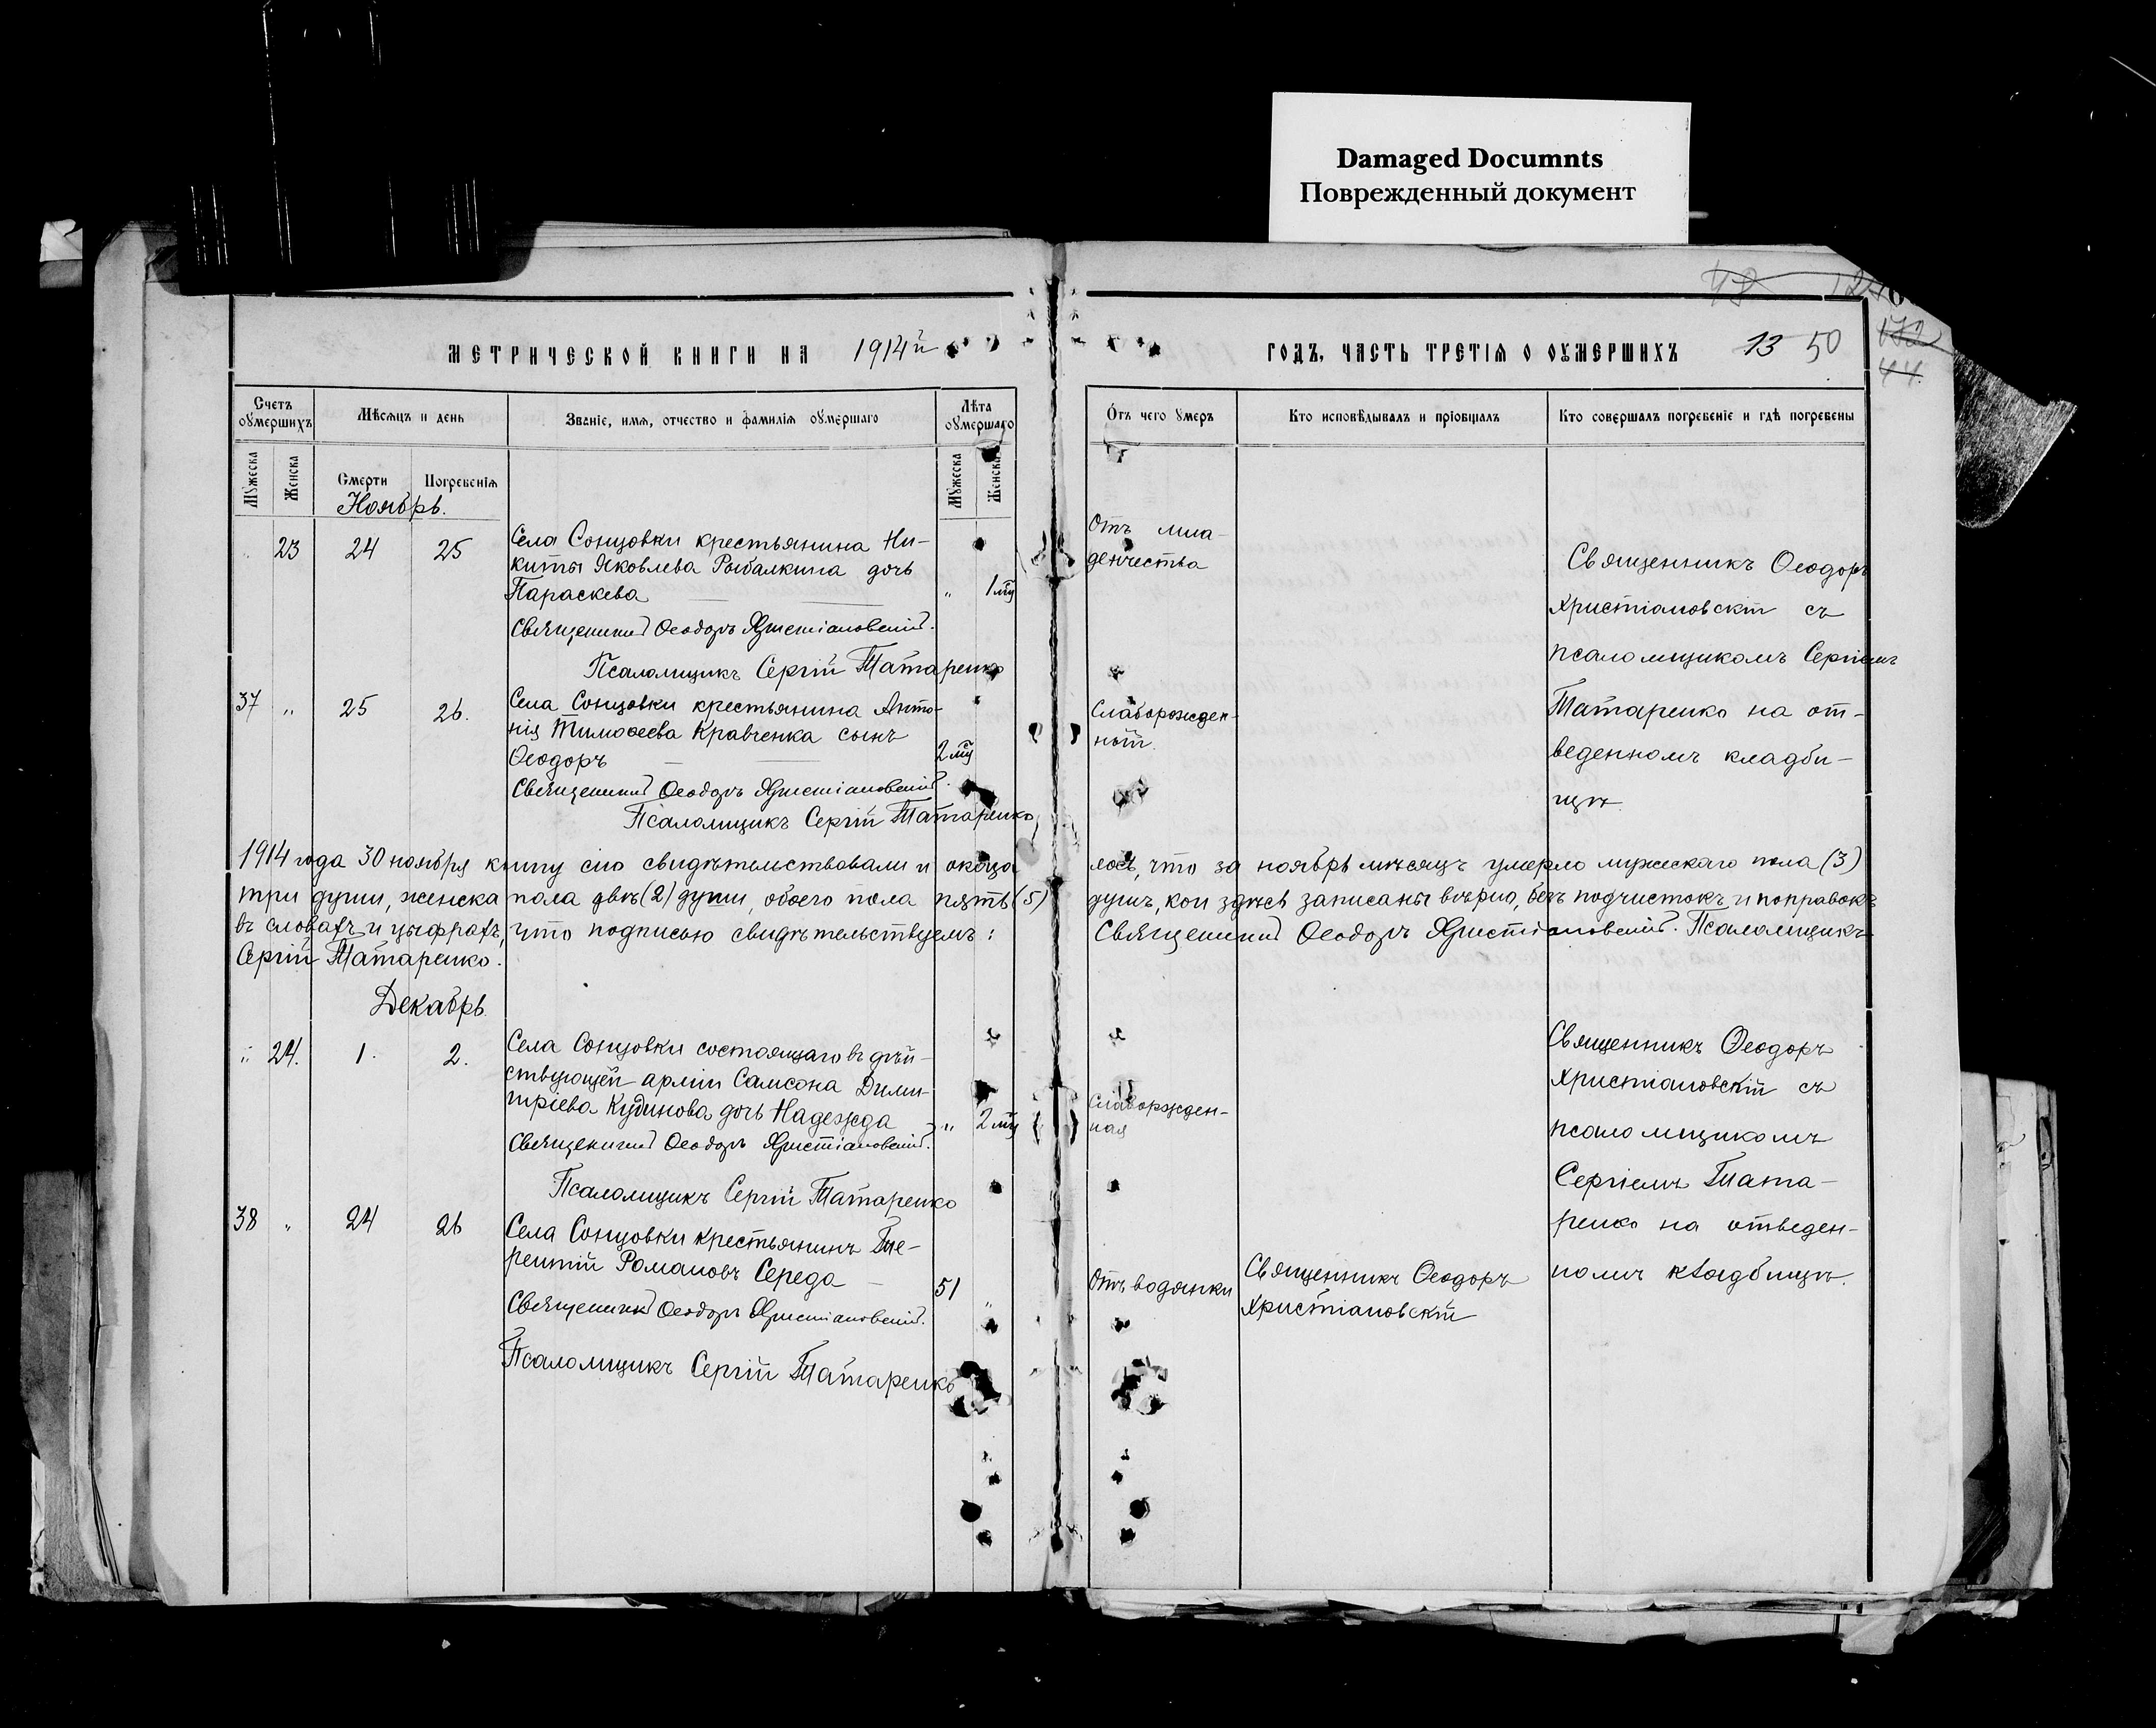 Damaged Documnts
Поврежденный документ
МЕТРИЧЕСКОЙ КНИГИ НА 1914й
ГОДЪ, ЧАСТЬ ТРЕТІЯ О ОУМЕРШИХЪ 13 50
Счетъ оумершихъ
Мѣсяцъ и день
Званіе, имя, отчество и фамилія оумершаго
Лѣта оумершаго
Отъ чего умеръ
Кто исповѣдывалъ и пріобщалъ
Кто совершалъ погребеніе и гдѣ погребены
Мужеска
Женска
Смерти
Погребенія
Мужеска
Женска
Ноябрь.
23 24 25
Села Сонцовки крестьянина Ни-
киты Яковлева Рыбалкина дочь
Параскева „ 1 мц
Священникъ Ѳеодоръ Христіановскій.
Псаломщикъ Сергій Татаренко
Отъ мла-
денчества
Священникъ Ѳеодоръ
Христіановскій съ
псаломщикомъ Сергіемъ
Татаренко на от-
веденномъ кладби-
щѣ.
37 „ 25 26.
Села Сонцовки крестьянина Анто-
нія Тимоѳеева Кравченка сынъ
Ѳеодоръ 2 мц
Священникъ Ѳеодоръ Христіановскій.
Псаломщикъ Сергій Татаренко
Слаборожден-
ный.
1914 года 30 ноября книгу сію свидѣтельствовали и оказа
лось, что за ноябрь мѣсяцъ умерло мужескаго пола (3)
три души, женска пола двѣ (2) души, обоего пола пять (5)
душъ, кои здѣсь записаны вѣрно, безъ подчистокъ и поправокъ
въ словахъ и цыфрахъ, что подписью свидѣтельствуемъ:
Священникъ Ѳеодоръ Христіановскій. Псаломщикъ
Сергій Татаренко.
Декабрь.
„ 24. 1. 2.
Села Сонцовки состоящаго въ дѣй-
ствующей арміи Самсона Дими-
тріева Кудинова дочь Надежда „ 2 мц
Священникъ Ѳеодоръ Христіановскій.
Псаломщикъ Сергій Татаренко
Слаборожден-
ная
Священникъ Ѳеодоръ
Христіановскій съ
псаломщикомъ
Сергіемъ Тата-
ренко на отведен-
номъ кладбищѣ.
38 „ 24 26
Села Сонцовки крестьянинъ Те-
рентій Романовъ Середа 51 „
Священникъ Ѳеодоръ Христіановскій.
Псаломщикъ Сергій Татаренко
Отъ водянки
Священникъ Ѳеодоръ
Христіановскій